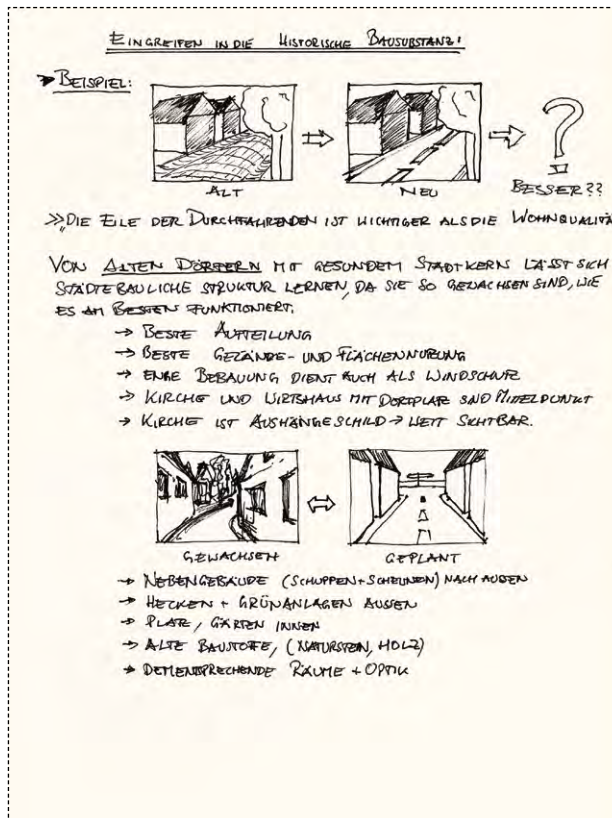 EINGREIFEN IN DIE HISTORISCHE BAUSUBSTANZ:
BEISPIEL:
ALT
NEU
BESSER??
"DIE EILE DER DURCHFAHRENDEN IST WICHTIGER ALS DIE WOHNQUALITÄ
VON ALTEN DÖRFERN MIT GESUNDEM STADTKERN LÄSST SICH
STÄDTEBAULICHE STRUKTUR LERNEN, DA SIE SO GEWACHSEN SIND, WIE
ES AM BESTEN FUNKTIONIERT.
→ BESTE AUFTEILUNG
→ BESTE GELÄNDE- UND FLÄCHENNUTZUNG
→ ENGE BEBAUUNG DIENT AUCH ALS WINDSCHUTZ
→ KIRCHE UND WIRTSHAUS MIT DORFPLATZ SIND MITTELPUNKT
→ KIRCHE IST AUSHÄNGESCHILD → WEIT SICHTBAR.
GEWACHSEN
GEPLANT
→ NEBENGEBÄUDE (SCHUPPEN + SCHEUNEN) NACH AUßEN
→ HECKEN + GRÜNANLAGEN AUSSEN
→ PLATZ / GÄRTEN INNEN
→ ALTE BAUSTOFFE, (NATURSTEIN, HOLZ)
→ DEMENTSPRECHENDE RÄUME + OPTIK